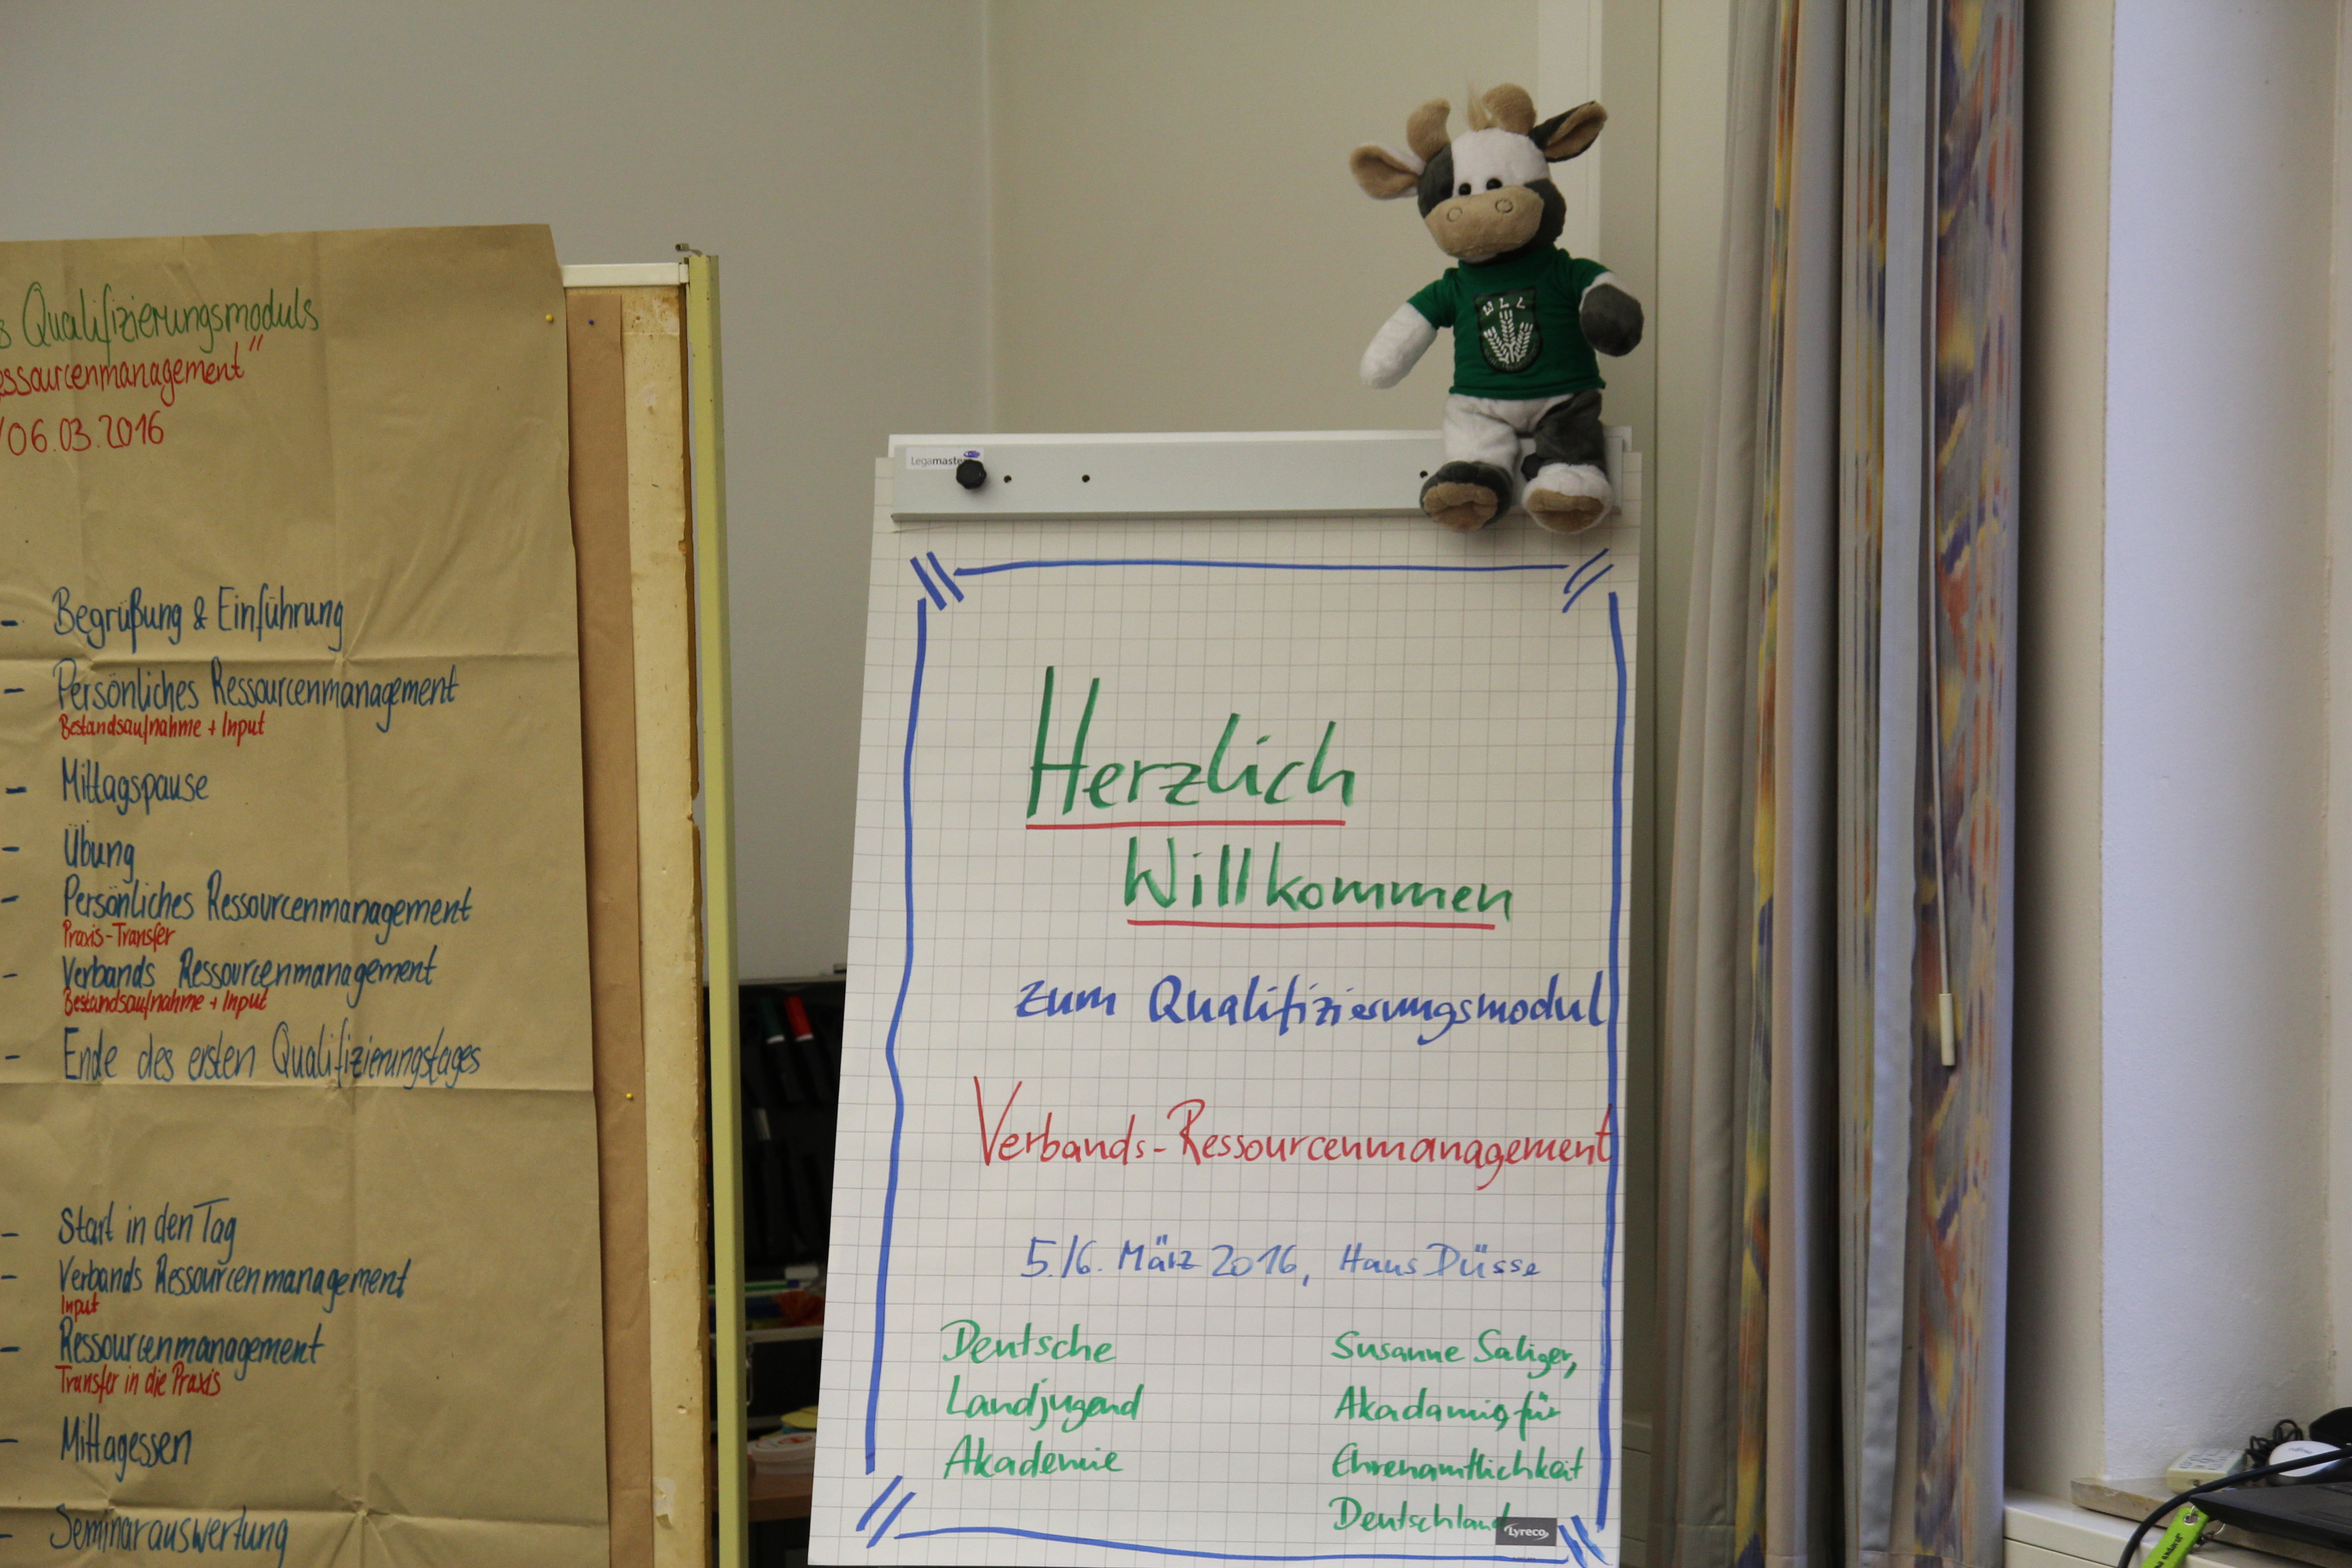 Qualifizierungsmoduls
ssourcenmanagement"
/06.03.2016
- Begrüßung & Einführung
- Persönliches Ressourcenmanagement
Bestandsaufnahme + Input
- Mittagspause
- Übung
- Persönliches Ressourcenmanagement
Praxis-Transfer
- Verbands Ressourcenmanagement
Bestandsaufnahme + Input
- Ende des ersten Qualifizierungstages
- Start in den Tag
- Verbands Ressourcenmanagement
Input
- Ressourcenmanagement
Transfer in die Praxis
- Mittagessen
- Seminarauswertung
Legamaster
Herzlich
Willkommen
zum Qualifizierungsmodul
Verbands-Ressourcenmanagement
5./6. März 2016, Haus Düsse
Deutsche
Landjugend
Akademie
Susanne Saliger,
Akadamie für
Ehrenamtlichkeit
Deutschland
Lyreco